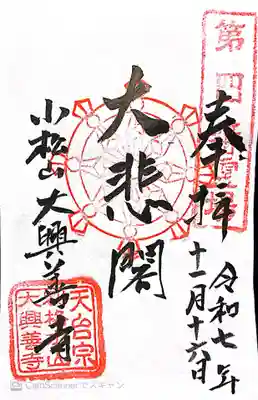 奉拝
令和七年
十一月十六日
大悲閣
小松山 大興善寺
天台宗
小松山
大興善寺
CamScannerでスキャン